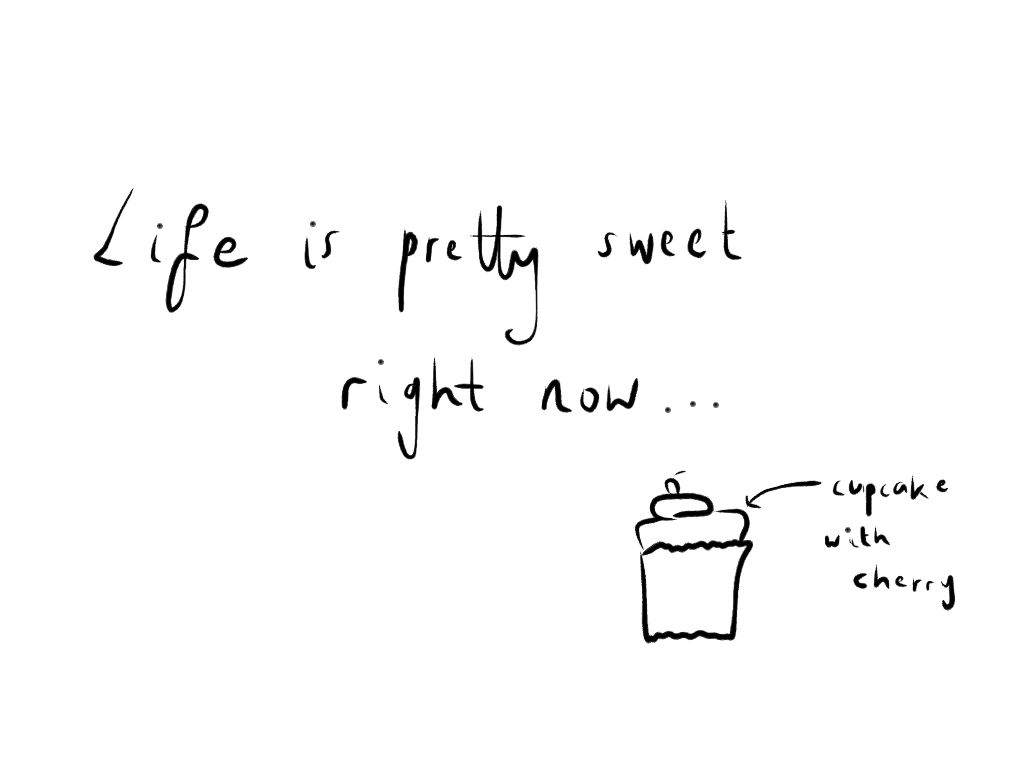 Life is pretty sweet
right now...
cupcake
with
cherry